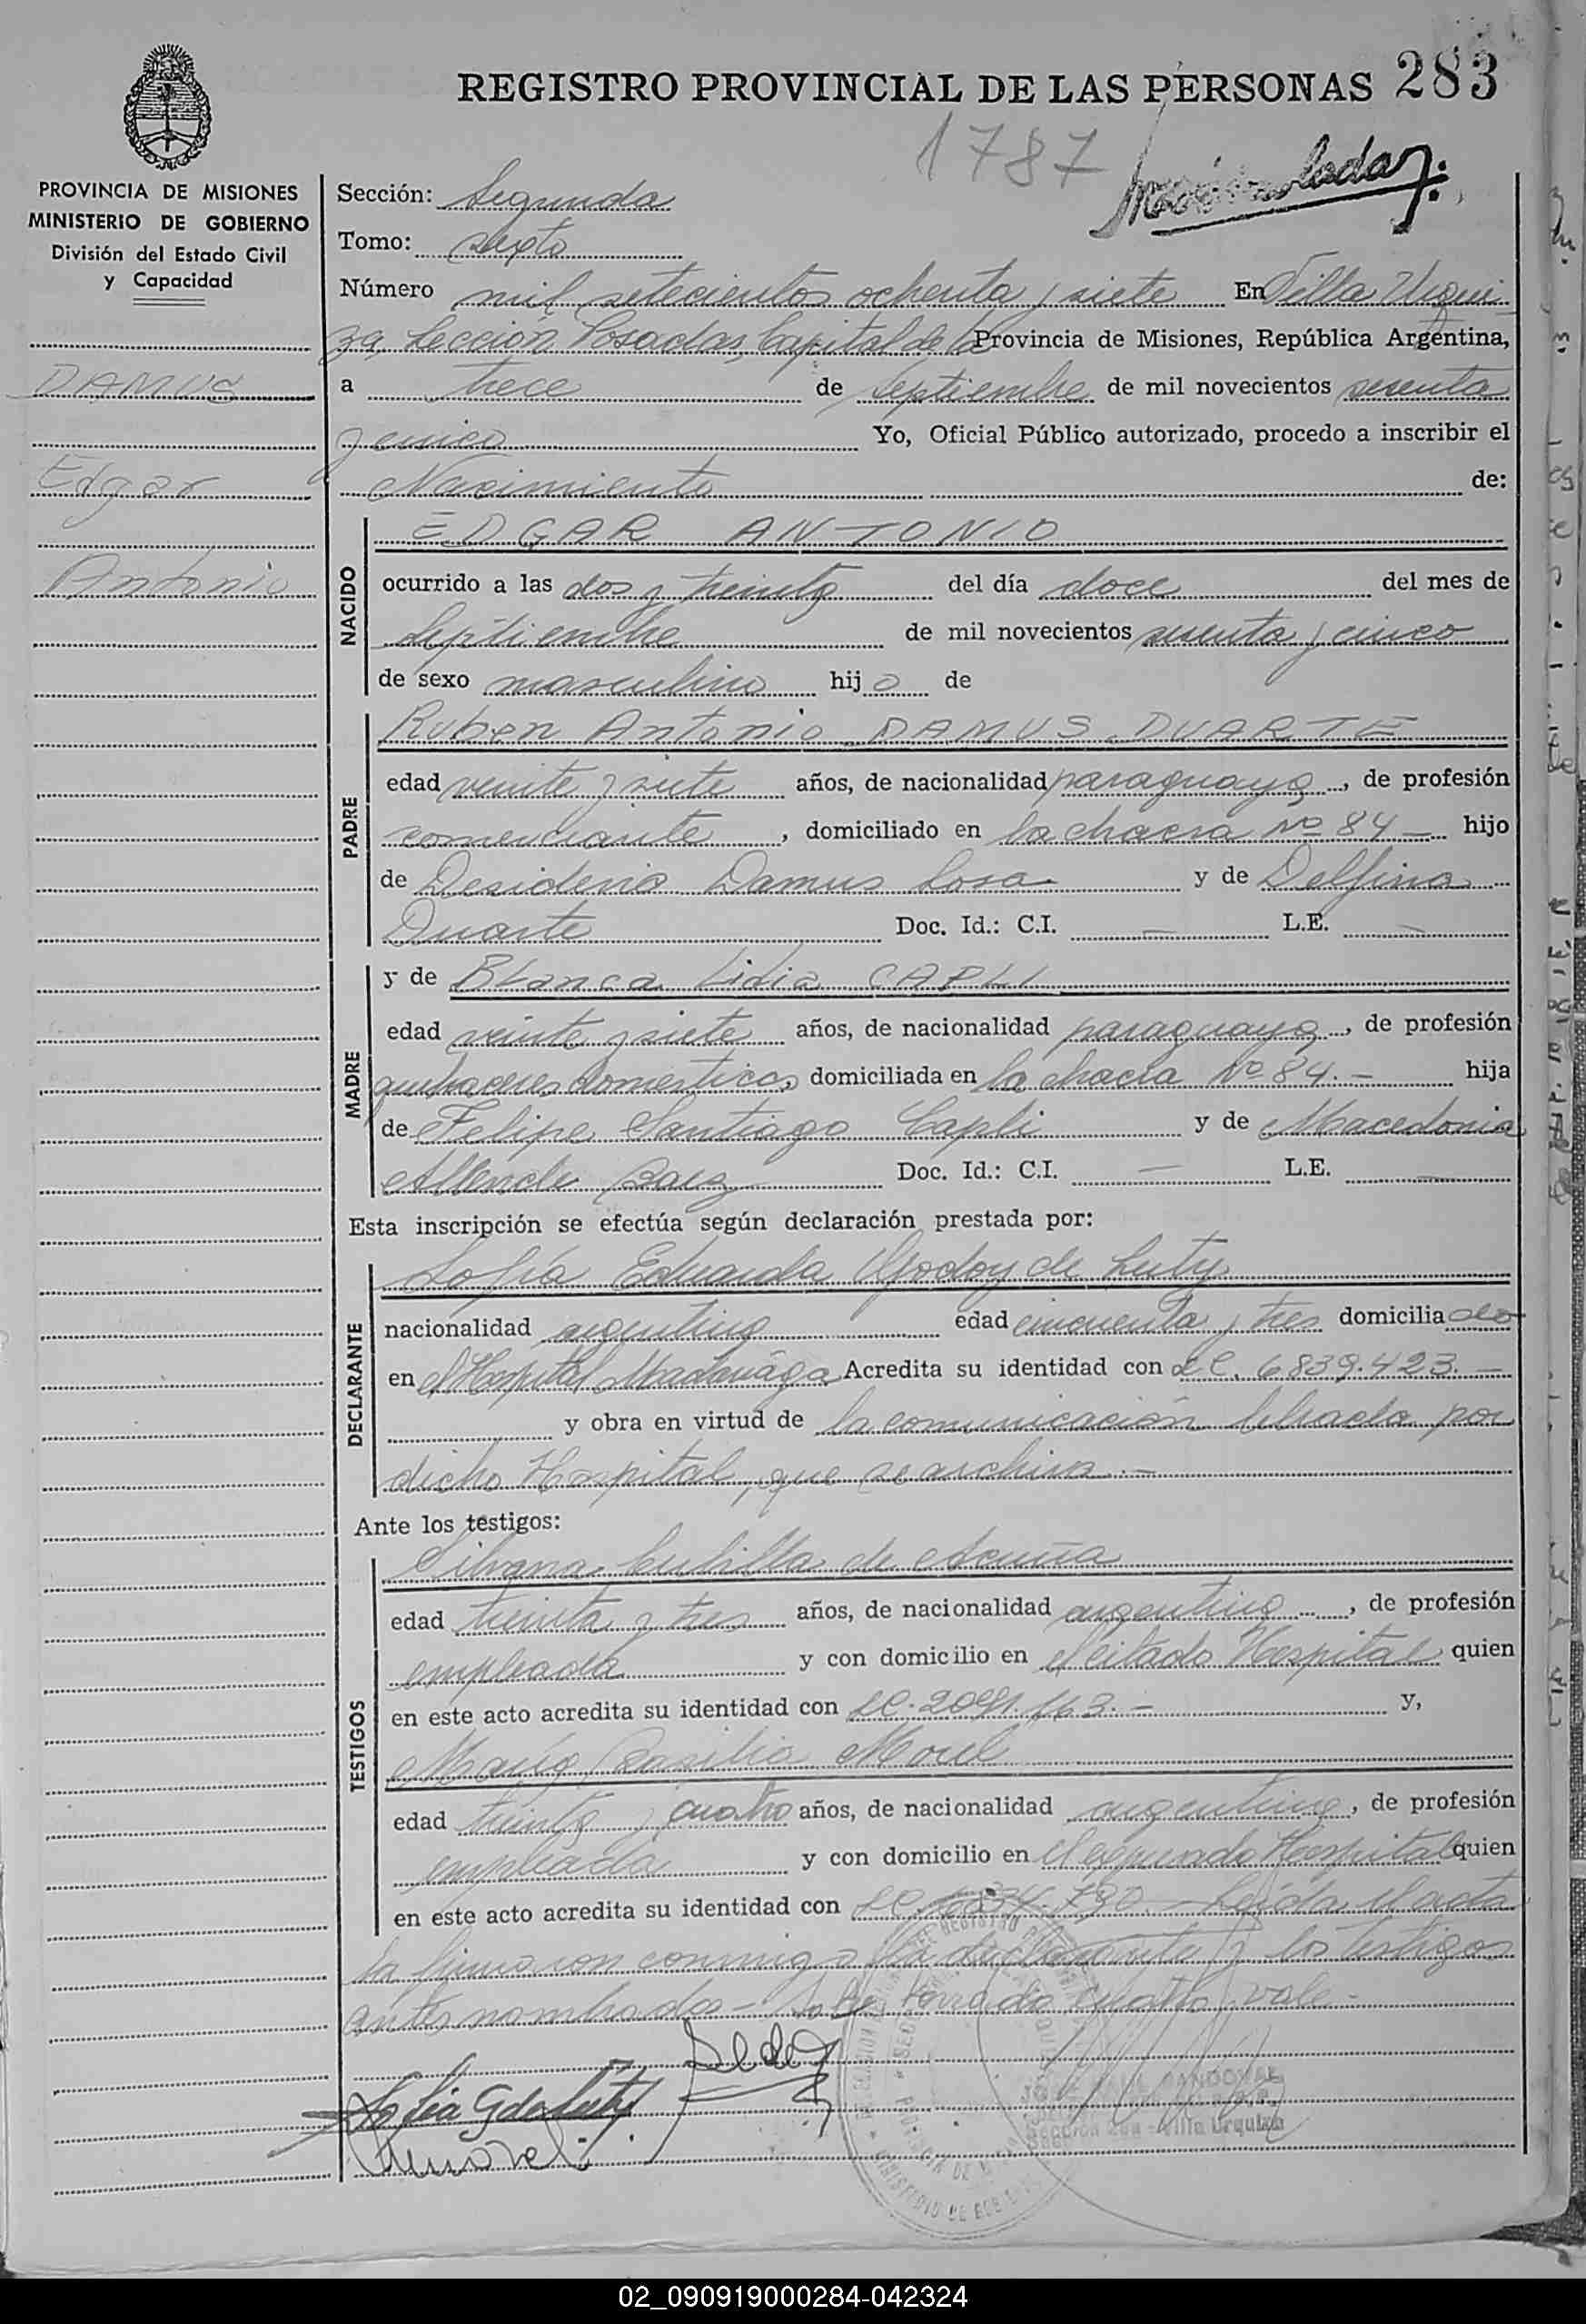 REGISTRO PROVINCIAL DE LAS PERSONAS 283
1787
PROVINCIA DE MISIONES
MINISTERIO DE GOBIERNO
División del Estado Civil
y Capacidad
DAMUS
Edgar
Antonio
Sección: Segunda
Tomo: sexto
Número mil setecientos ochenta y siete En Villa Urqui
za, Sección Posadas, Capital de la Provincia de Misiones, República Argentina,
a trece de septiembre de mil novecientos sesenta
y cinco Yo, Oficial Público autorizado, procedo a inscribir el
Nacimiento de:
NACIDO
EDGAR ANTONIO
ocurrido a las dos y treinta del día doce del mes de
septiembre de mil novecientos sesenta y cinco
de sexo masculino hijo de
PADRE
Ruben Antonio DAMUS DUARTE
edad veinte y siete años, de nacionalidad paraguaya, de profesión
comerciante, domiciliado en la chacra Nº 84 — hijo
de Desiderio Damus Sosa y de Delfina
Duarte Doc. Id.: C.I. — L.E. —
MADRE
y de Blanca Lidia CAPLI
edad veinte y siete años, de nacionalidad paraguaya, de profesión
quehaceres domesticos, domiciliada en la chacra Nº 84.- hija
de Felipe Santiago Capli y de Macedonia
Allende Baez Doc. Id.: C.I. — L.E. —
Esta inscripción se efectúa según declaración prestada por:
DECLARANTE
Sofía Eduarda Godoy de Luty
nacionalidad argentina edad cincuenta y tres domiciliado
en el Hospital Madariaga Acredita su identidad con L.C. 6839.423.—
y obra en virtud de la comunicación librada por
dicho Hospital, que se archiva.—
Ante los testigos:
TESTIGOS
Silvana Cubilla de Acuña
edad treinta y tres años, de nacionalidad argentina, de profesión
empleada y con domicilio en el citado Hospital quien
en este acto acredita su identidad con LC. y,
María Basilia Morel
edad treinta y cuatro años, de nacionalidad argentina, de profesión
empleada y con domicilio en el expresado Hospital quien
en este acto acredita su identidad con LC. Leída el acta
la firmaron conmigo la declarante y los testigos
antes nombrados - Sobre borrado cuatro vale -
Sofia G de Luty
SANDOVAL
Villa Urquiza
02_090919000284-042324